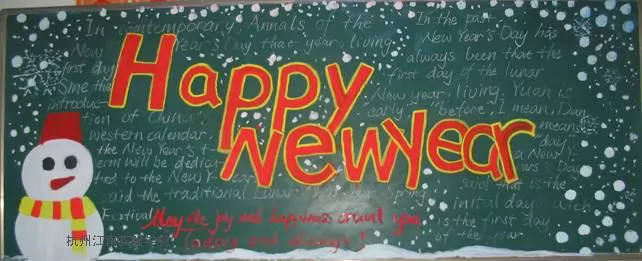 In contemporary Annals of the
New Year's Day, that year, living
first day
introduc-
tion of China
western calendar,
the New Year's
erm will be dedica-
ted to the New Year
said the traditional Lunar New Year Spring
Festival
Happy
NewYear
In the past
New Year's Day has
always been that the
first day of the lunar
New year, living, Yuan is
early, "before, I mean, Dan
means
day
a New
said that is the
initial day
is the first day
of the
May the joy and happiness around you
today and always!
杭州江